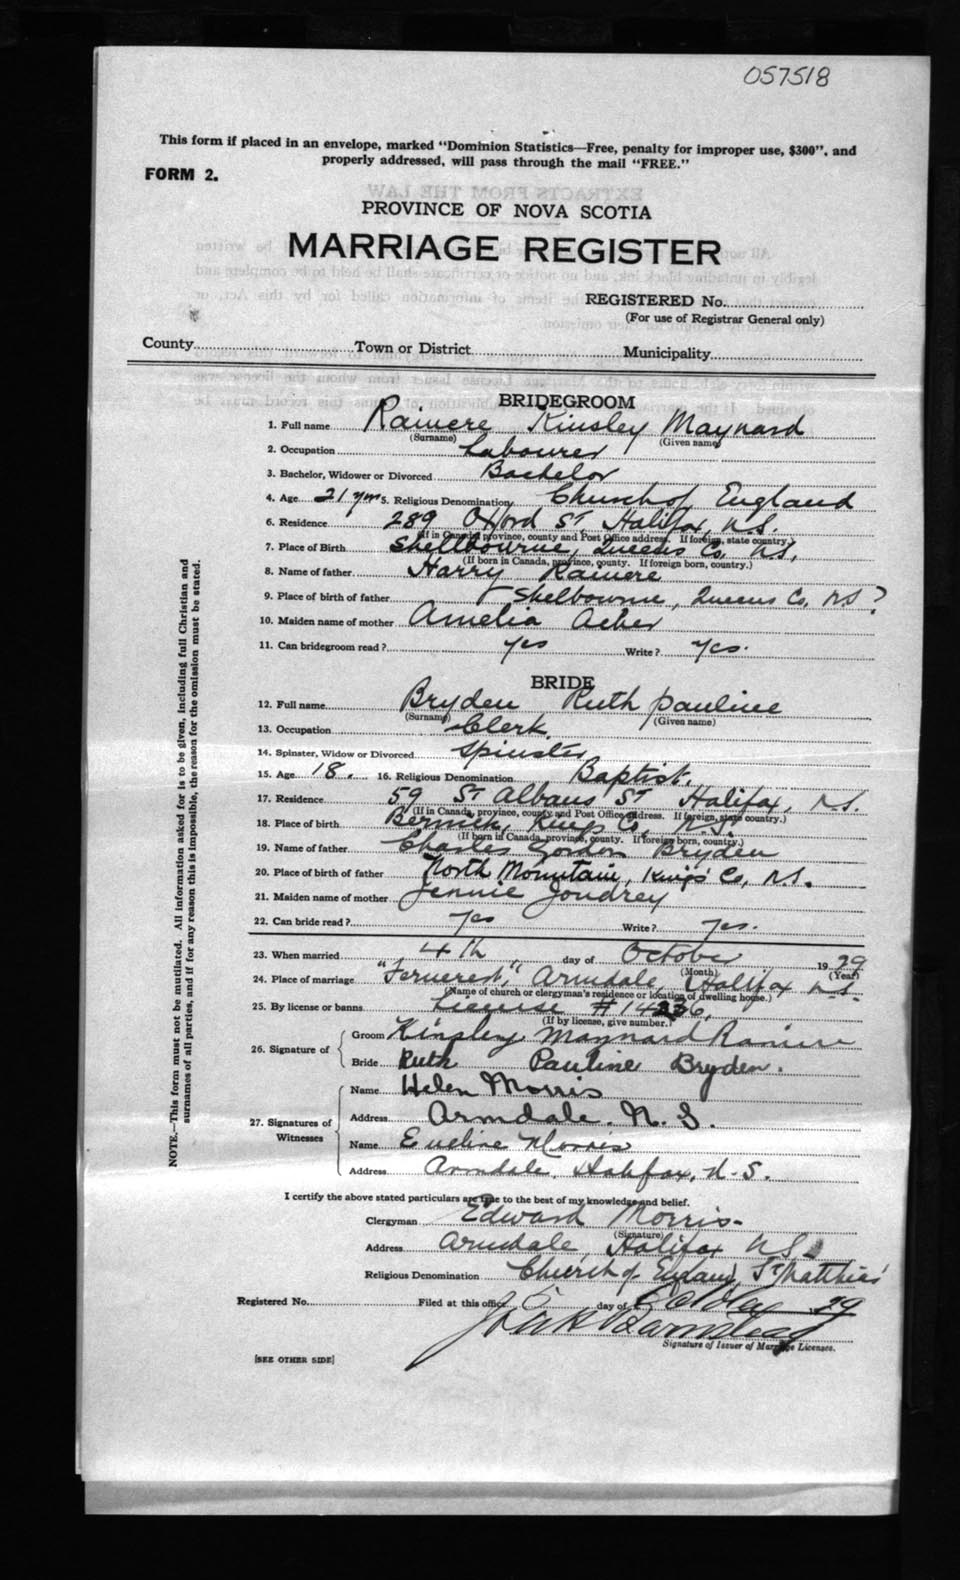 057518
This form if placed in an envelope, marked "Dominion Statistics—Free, penalty for improper use, $300", and
properly addressed, will pass through the mail "FREE."
FORM 2.
PROVINCE OF NOVA SCOTIA
MARRIAGE REGISTER
REGISTERED No.
(For use of Registrar General only)
County Town or District Municipality
BRIDEGROOM
1. Full name Ramere Kinsley Maynard
(Surname) (Given name)
2. Occupation Labourer
3. Bachelor, Widower or Divorced Bachelor
4. Age 21 yrs 5. Religious Denomination Church of England
6. Residence 289 Oxford St Halifax, N.S.
(If in Canada, province, county and Post Office address. If foreign, state country.)
7. Place of Birth Shelbourne, Queens Co. N.S.
(If born in Canada, province, county. If foreign born, country.)
8. Name of father Harry Ramere
9. Place of birth of father Shelbourne, Queens Co, N.S?
10. Maiden name of mother Amelia
11. Can bridegroom read? Yes Write? Yes.
BRIDE
12. Full name Bryden Ruth Pauline
(Surname) (Given name)
13. Occupation Clerk.
14. Spinster, Widow or Divorced Spinster
15. Age 18. 16. Religious Denomination Baptist.
17. Residence 59 St Albans St Halifax, N.S.
(If in Canada, province, county and Post Office address. If foreign, state country.)
18. Place of birth Berwick, Kings Co, N.S.
(If born in Canada, province, county. If foreign born, country.)
19. Name of father Charles Gordon Bryden
20. Place of birth of father North Mountain, Kings' Co, N.S.
21. Maiden name of mother Jennie Joudrey
22. Can bride read? Yes Write? Yes.
23. When married 4th day of October 1929
(Month) (Year)
24. Place of marriage Armdale, Halifax N.S.
(Name of church or clergyman's residence or location of dwelling house.)
25. By license or banns License #14236,
(If by license, give number.)
26. Signature of Groom Kinsley Maynard Ramere
Bride Ruth Pauline Bryden.
27. Signatures of Witnesses Name Helen Morris
Address Armdale. N. S.
Name Eveline Morris
Address Armdale, Halifax, N. S.
I certify the above stated particulars are true to the best of my knowledge and belief.
Clergyman Edward Morris
(Signature)
Address Armdale, Halifax N.S.
Religious Denomination Church of England, St Matthias'
Registered No. Filed at this office 5 day of October 29
Signature of Issuer of Marriage Licenses.
[SEE OTHER SIDE]
NOTE.—This form must not be mutilated. All information asked for is to be given, including full Christian and
surnames of all parties, and if for any reason this is impossible, the reason for the omission must be stated.